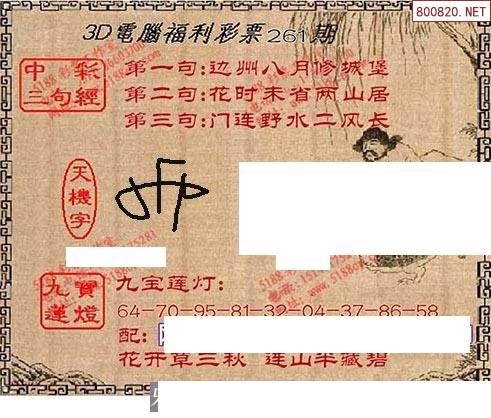 800820.NET
3D電腦福利彩票261期
中彩
三句經
第一句:边州八月修城堡
第二句:花时未省两山居
第三句:门连野水二风长
天機字
九寶
蓮燈
九宝莲灯:
64-70-95-81-32-04-37-86-58
配:
花开草三秋 连山半藏碧